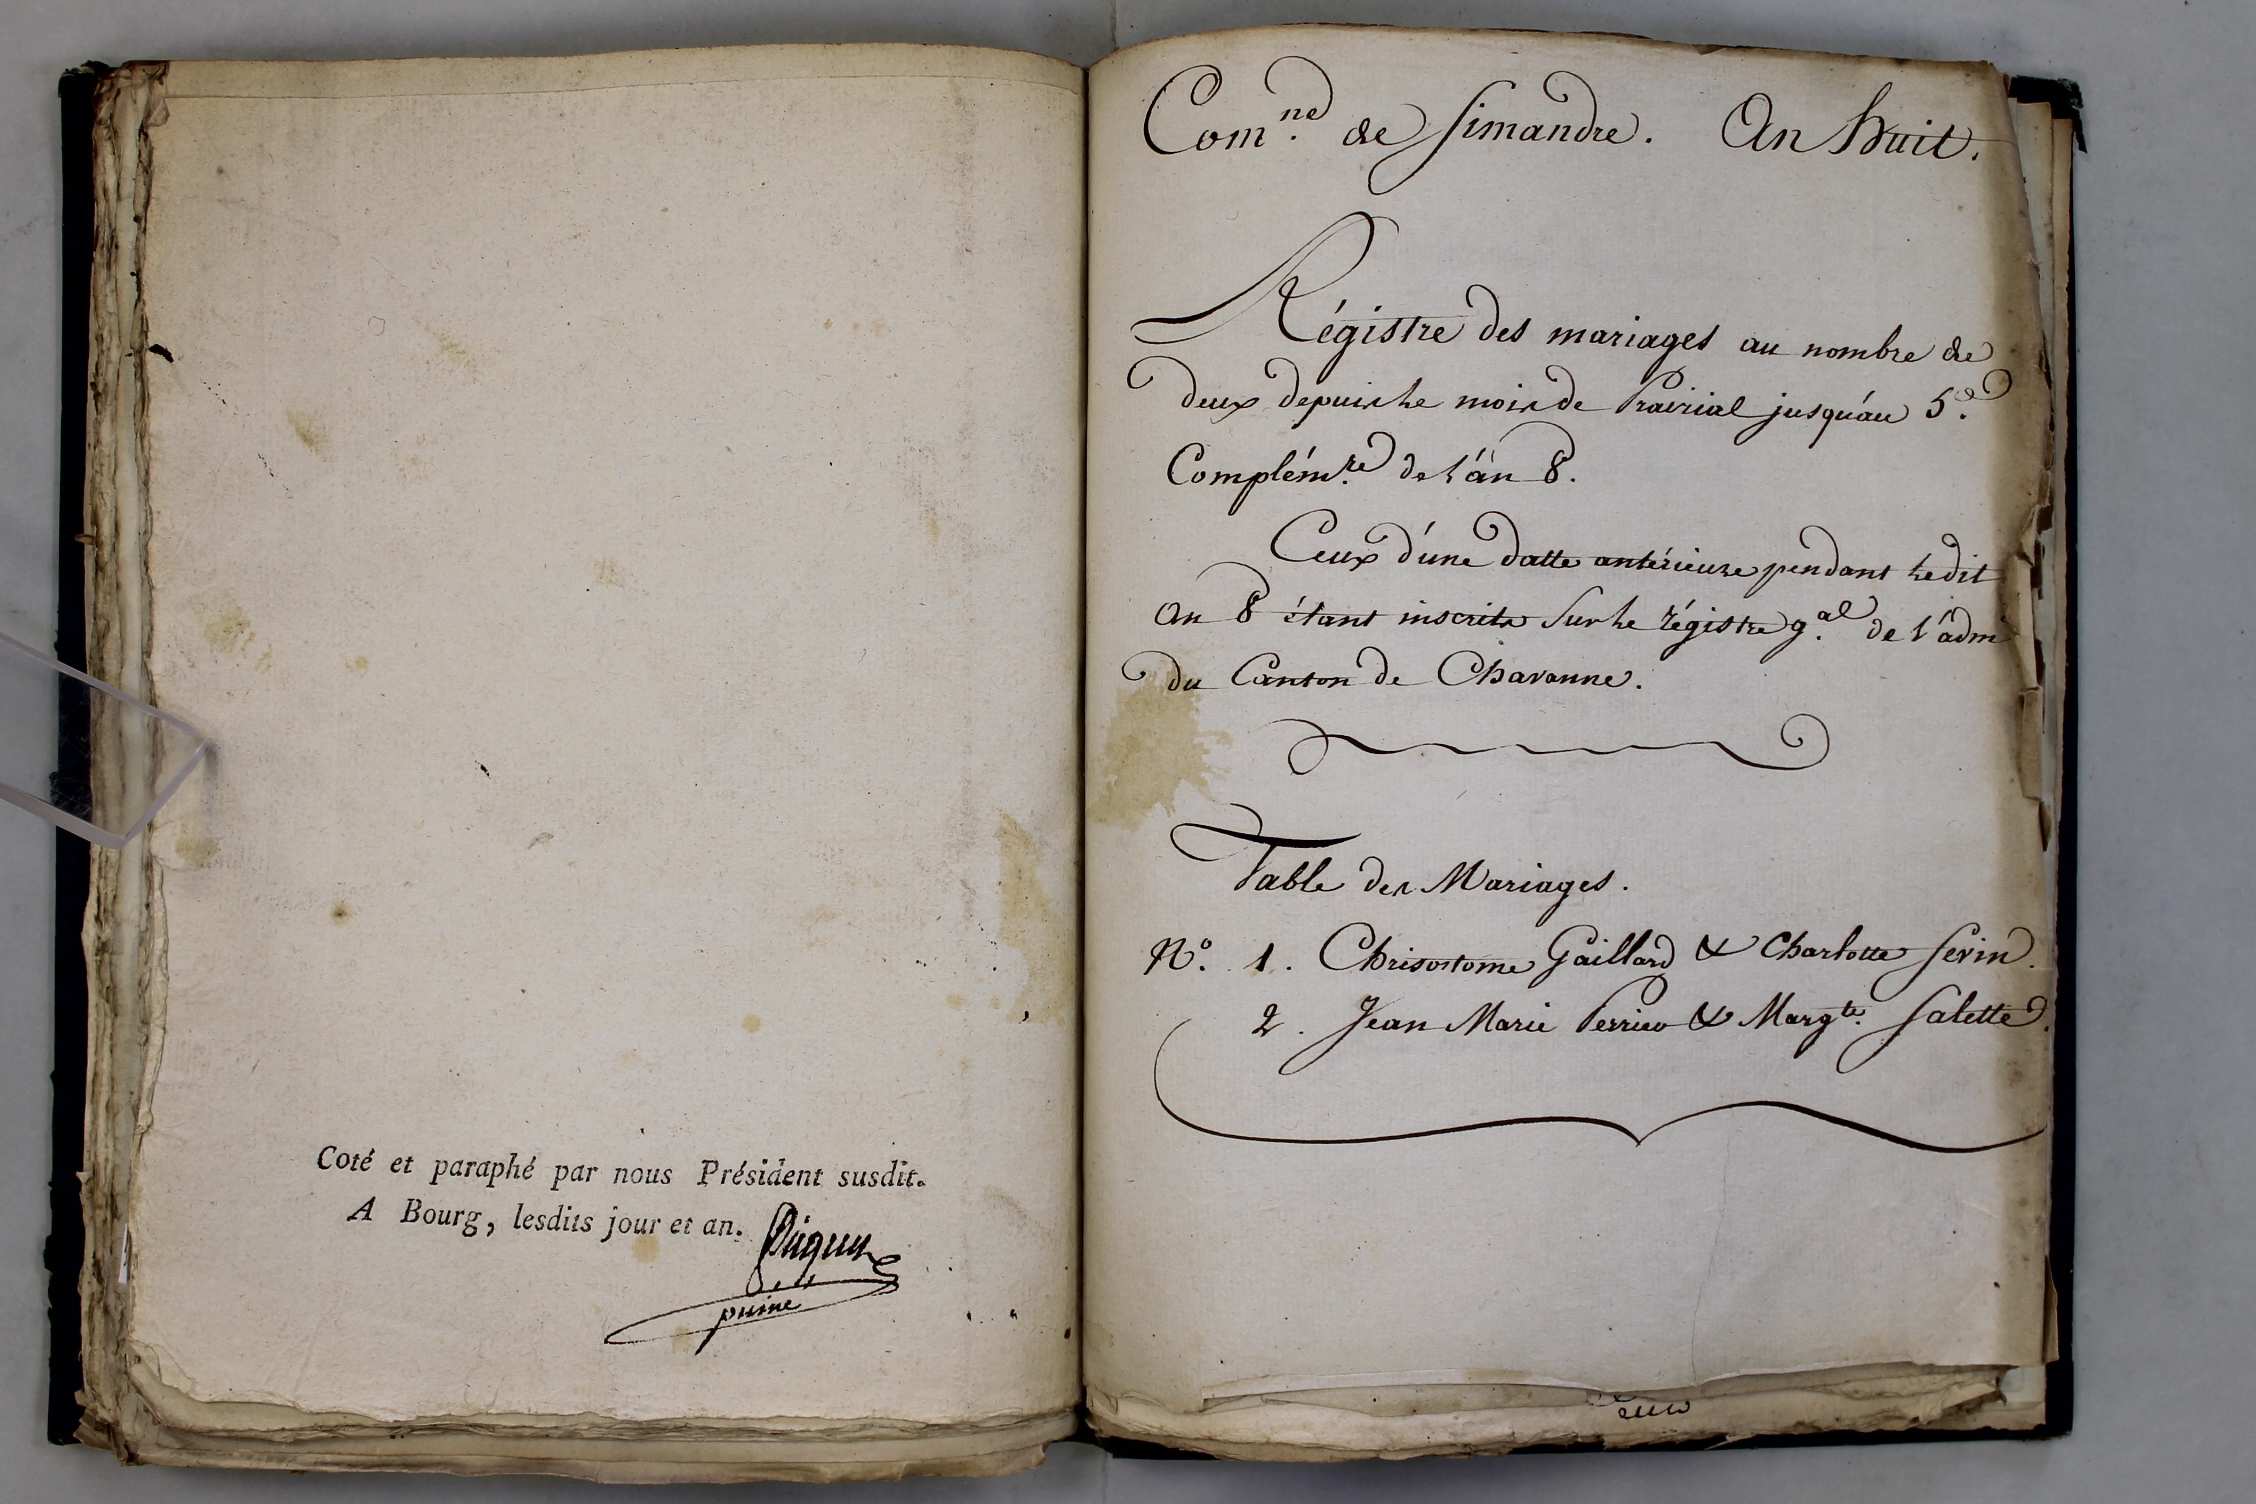 Coté et paraphé par nous Président susdit.
A Bourg, lesdits jour et an.
puiné
Com.ne de Simandre. An huit.
Régistre des mariages au nombre de
deux depuis le mois de Prairial jusqu'au 5.e
Complém.re de l'an 8.
Ceux d'une datte antérieure pendant ledit
an 8 étant inscrits sur le régistre g.al de l'adm
du Canton de Chavanne.
Table des Mariages.
N.o 1. Chrisostome Gaillard & Charlotte Sevin.
2. Jean Marie Perrier & Margte. Salette.